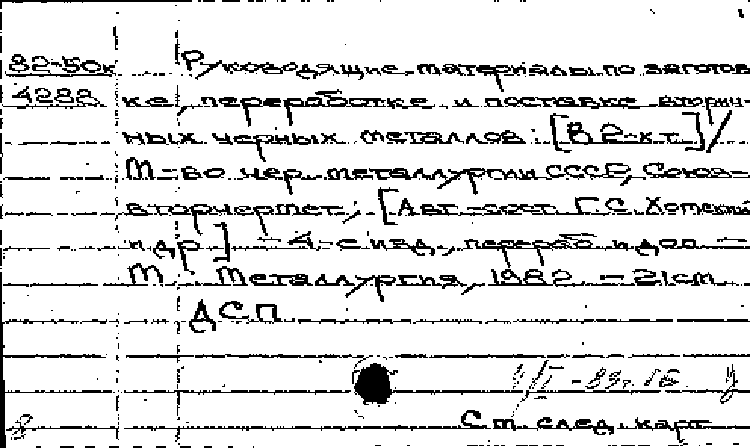 82-50к Руководящие материалы по заготов
4288 ке, переработке и поставке вторич-
ных черных металлов: [В 2-х т.] /
М-во чер. металлургии СССР, Союз-
вторчермет; [Авт.-сост. Г.С. Хотский
и др.] - 4-е изд., перераб. и доп. -
М. : Металлургия, 1982. - 21 см.
ДСП
/I - 83г. 16
См. след. карт.